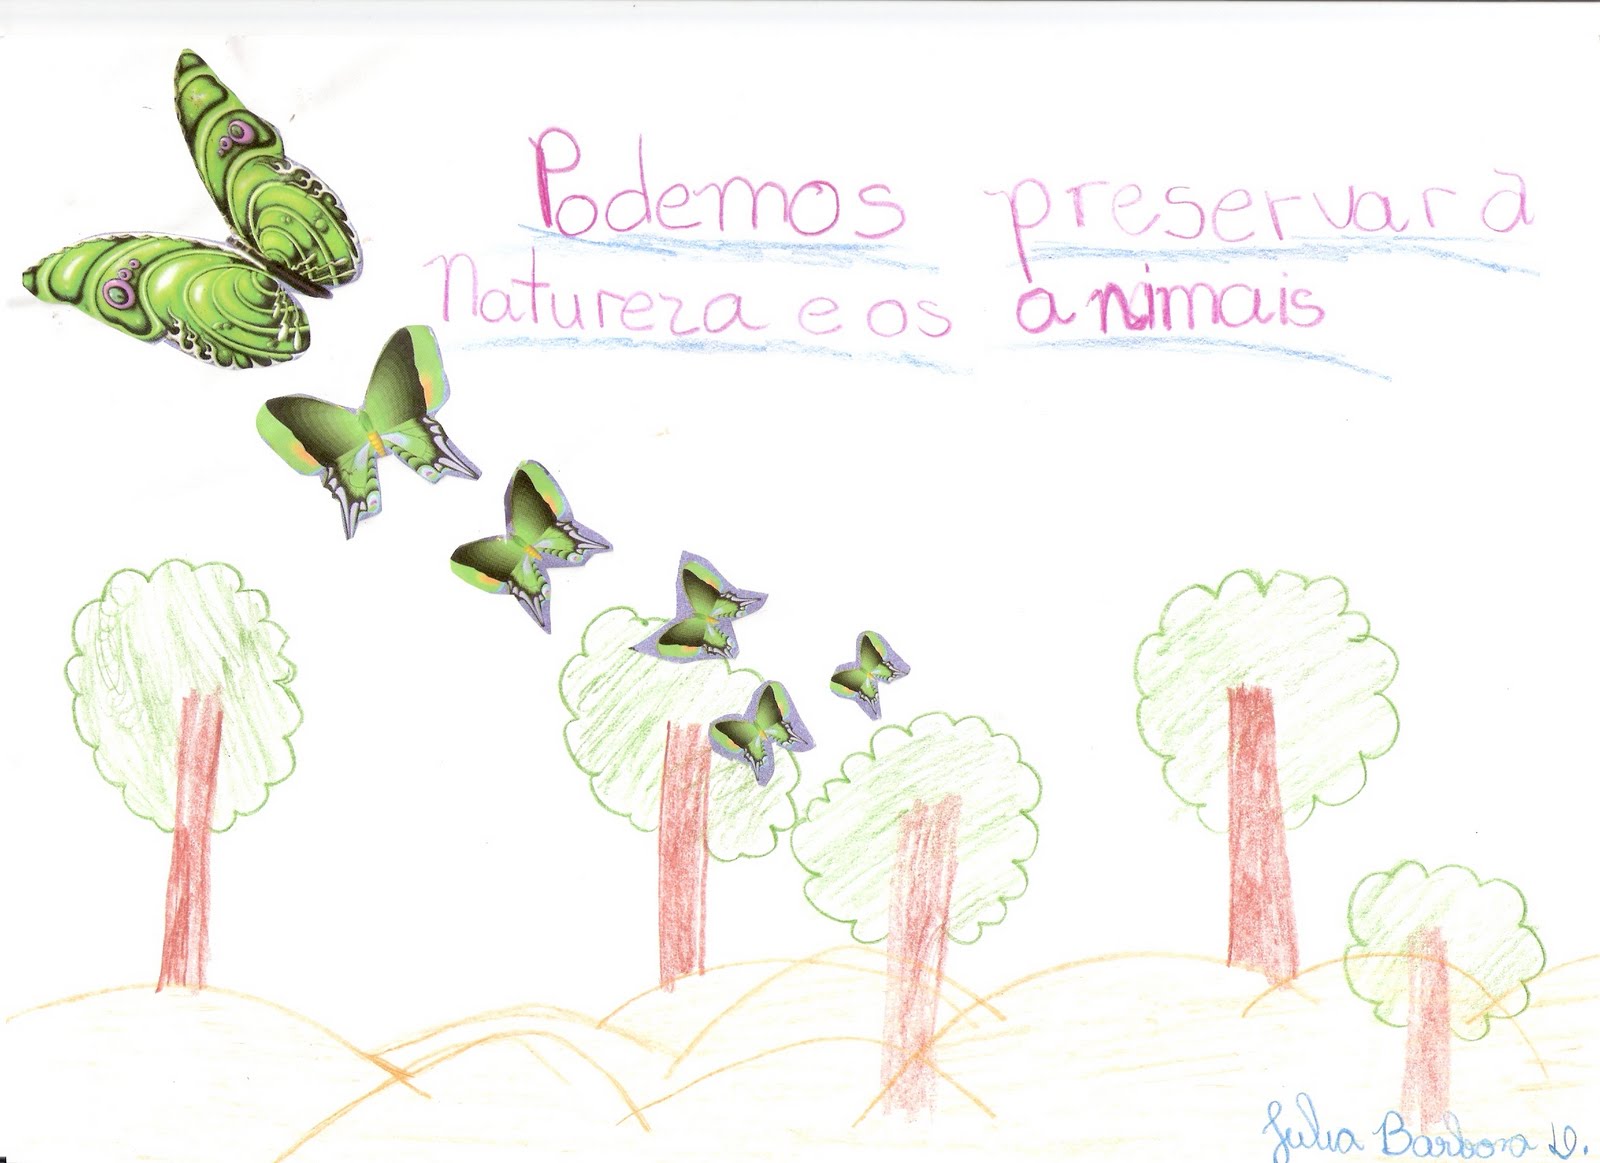 Podemos preservar a
Natureza e os animais
Julia Barbosa D.